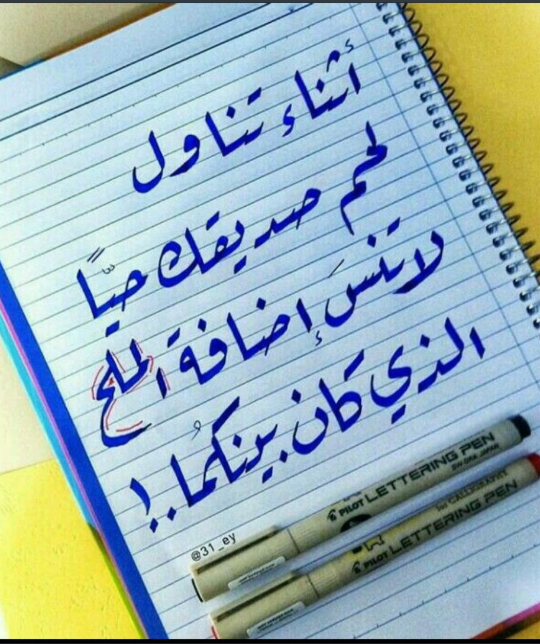 أثناء تناول
لحم صديقك حيّاً
لا تنسَ إضافة الملح
الذي كان بينكمُا..!
@31_ey
PILOT LETTERING PEN
PILOT LETTERING PEN